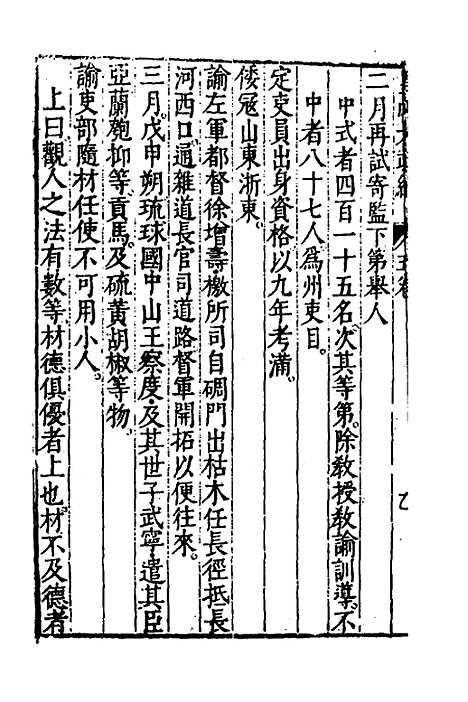 二月再試寄監下第舉人
中式者四百一十五名次其等第除教授教諭訓導不
中者八十七人爲州吏目
定吏員出身資格以九年考滿
倭冦山東浙東
諭左軍都督徐增壽檄所司自碉門出枯木任長徑抵長
河西口通雜道長官司道路督軍開拓以便往來
三月戊申朔琉球國中山王察度及其世子武寧遣其臣
亞蘭匏抑等貢馬及硫黄胡椒等物
諭吏部隨材任使不可用小人
上曰觀人之法有數等材德俱優者上也材不及德者